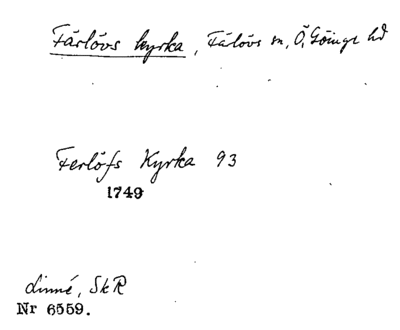 Färlövs kyrka, Fälövs sn, Ö. Göinge hd
Ferlöfs Kyrka 93
1749
Linné, SkR
Nr 6559.